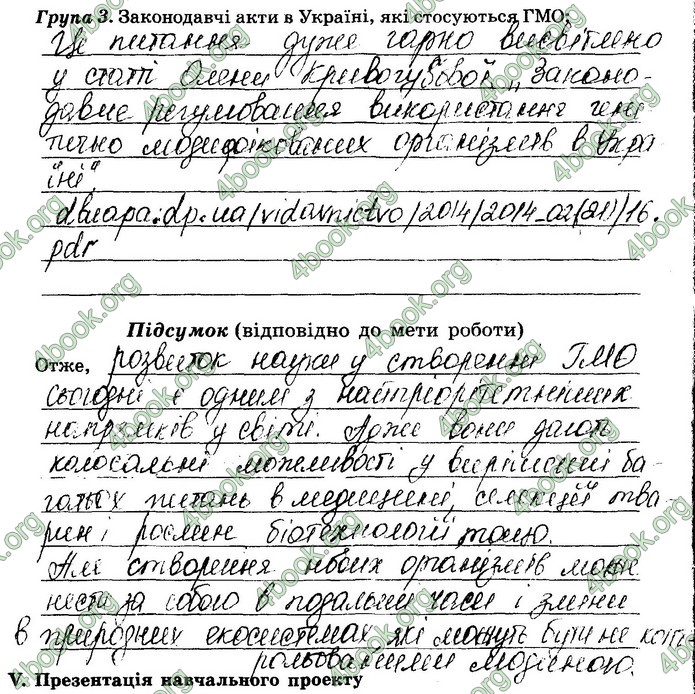 Група 3. Законодавчі акти в Україні, які стосуються ГМО:
Це питання дуже гарно висвітлено
у статі Олени Кривогубової „Законо-
давче регулювання використання гене
тично модифікованих організмів в Укра
їні".
dbuapa.dp.ua/vidavnictvo/2014/2014_02(21)/16.
pdf
Підсумок (відповідно до мети роботи)
Отже, розвиток науки у створенні ГМО
сьогодні є одним з найпріорітетніших
напрямків у світі. Адже вони дають
колосальні можливості у вирішенні ба
гатьох питань в медицині, селекції тва
рин і рослин біотехнології тощо.
Але створення нових організмів може
нести за собою в подальші часи і зміни
в природних екосистемах які можуть бути не конт
рольованими людиною.
V. Презентація навчального проекту
4book.org